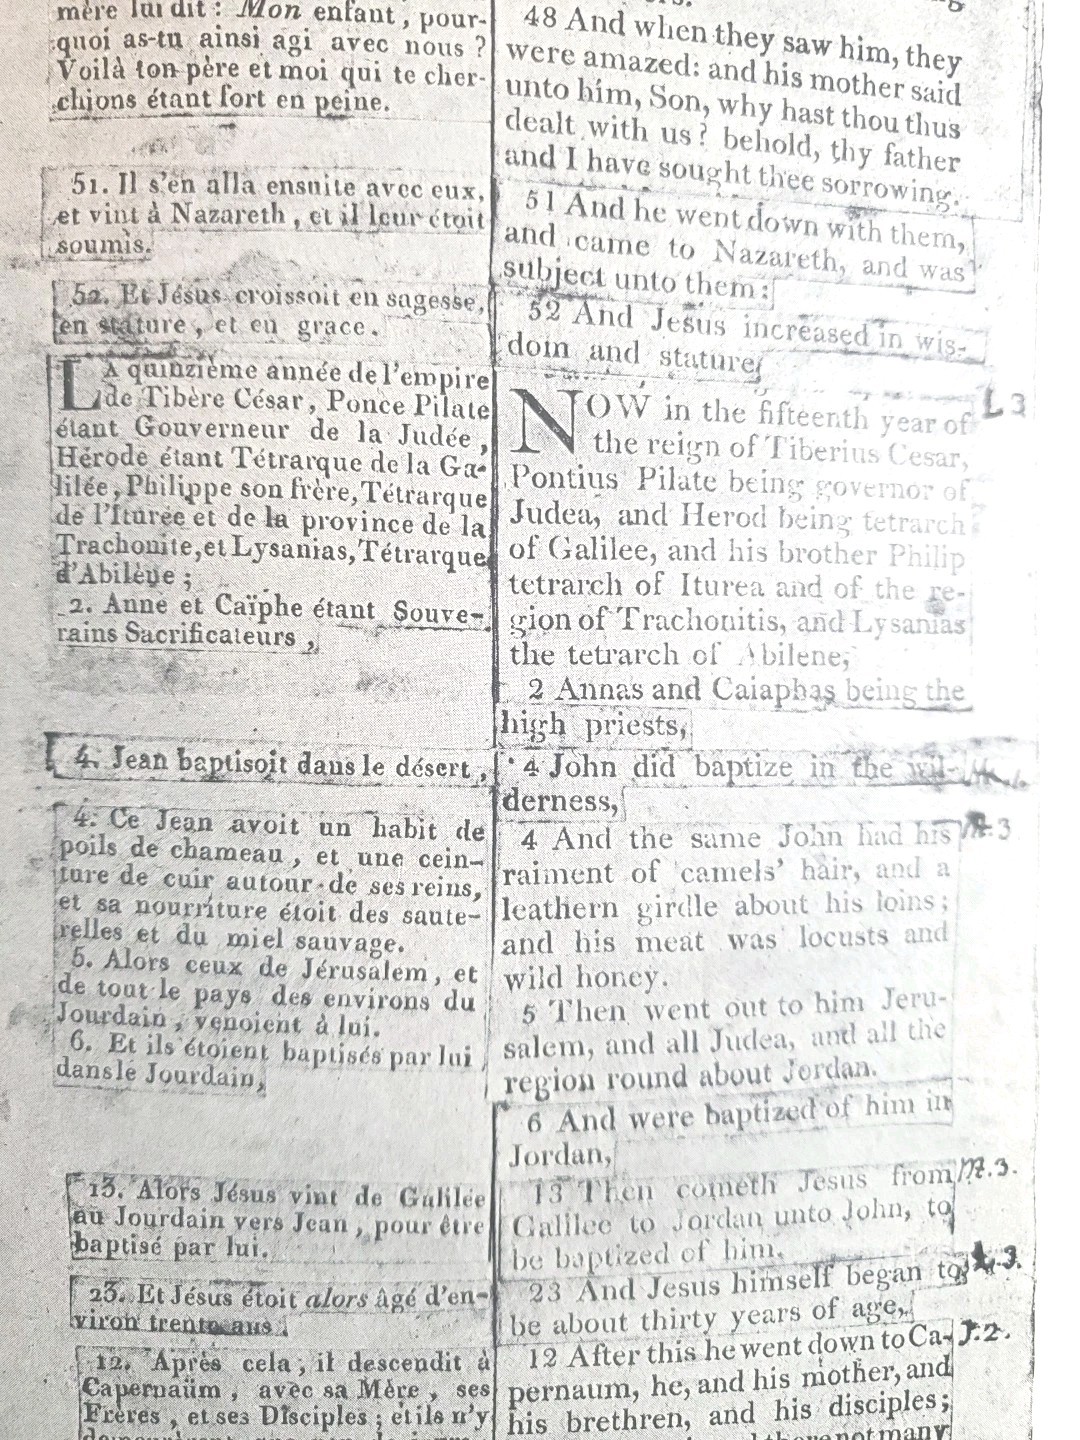 mère lui dit : Mon enfant, pour-
quoi as-tu ainsi agi avec nous ?
Voilà ton père et moi qui te cher-
chions étant fort en peine.
51. Il s'en alla ensuite avec eux,
et vint à Nazareth, et il leur étoit
soumis.
52. Et Jésus croissoit en sagesse,
en stature, et en grace.
LA quinzième année de l'empire
de Tibère César, Ponce Pilate
étant Gouverneur de la Judée,
Hérode étant Tétrarque de la Ga-
lilée, Philippe son frère, Tétrarque
de l'Iturée et de la province de la
Trachonite, et Lysanias, Tétrarque
d'Abilène ;
2. Anne et Caïphe étant Souve-
rains Sacrificateurs,
4. Jean baptisoit dans le désert,
4. Ce Jean avoit un habit de
poils de chameau, et une cein-
ture de cuir autour de ses reins,
et sa nourriture étoit des saute-
relles et du miel sauvage.
5. Alors ceux de Jérusalem, et
de tout le pays des environs du
Jourdain, venoient à lui.
6. Et ils étoient baptisés par lui
dans le Jourdain,
13. Alors Jésus vint de Galilée
au Jourdain vers Jean, pour être
baptisé par lui.
23. Et Jésus étoit alors âgé d'en-
viron trente ans.
12. Après cela, il descendit à
Capernaüm, avec sa Mère, ses
Frères, et ses Disciples ; et ils n'y
48 And when they saw him, they
were amazed: and his mother said
unto him, Son, why hast thou thus
dealt with us? behold, thy father
and I have sought thee sorrowing.
51 And he went down with them,
and came to Nazareth, and was
subject unto them:
52 And Jesus increased in wis-
dom and stature,
L 3
NOW in the fifteenth year of
the reign of Tiberius Cesar,
Pontius Pilate being governor of
Judea, and Herod being tetrarch
of Galilee, and his brother Philip
tetrarch of Iturea and of the re-
gion of Trachonitis, and Lysanias
the tetrarch of Abilene,
2 Annas and Caiaphas being the
high priests,
4 John did baptize in the wil-
derness,
4 And the same John had his M. 3
raiment of camels' hair, and a
leathern girdle about his loins;
and his meat was locusts and
wild honey.
5 Then went out to him Jeru-
salem, and all Judea, and all the
region round about Jordan.
6 And were baptized of him in
Jordan,
13 Then cometh Jesus from M.3.
Galilee to Jordan unto John, to
be baptized of him.
23 And Jesus himself began to L.3.
be about thirty years of age,
12 After this he went down to Ca- J.2.
pernaum, he, and his mother, and
his brethren, and his disciples;
there not many